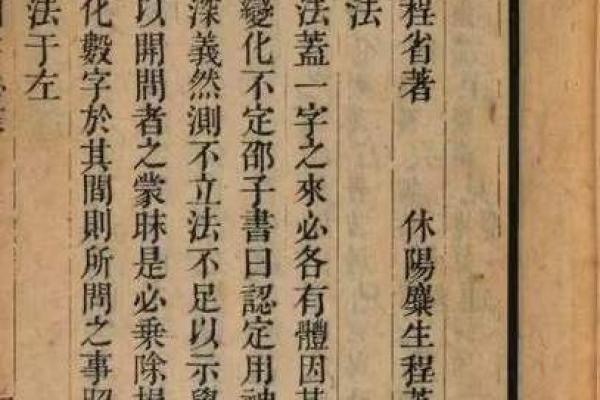 程省著 休陽麋生程
法
法葢一字之來必各有體因其
變化不定邵子書曰認定用神
深義然測不立法不足以示
以開問者之蒙眛是必乗除
化數字於其間則所問之事
法于左